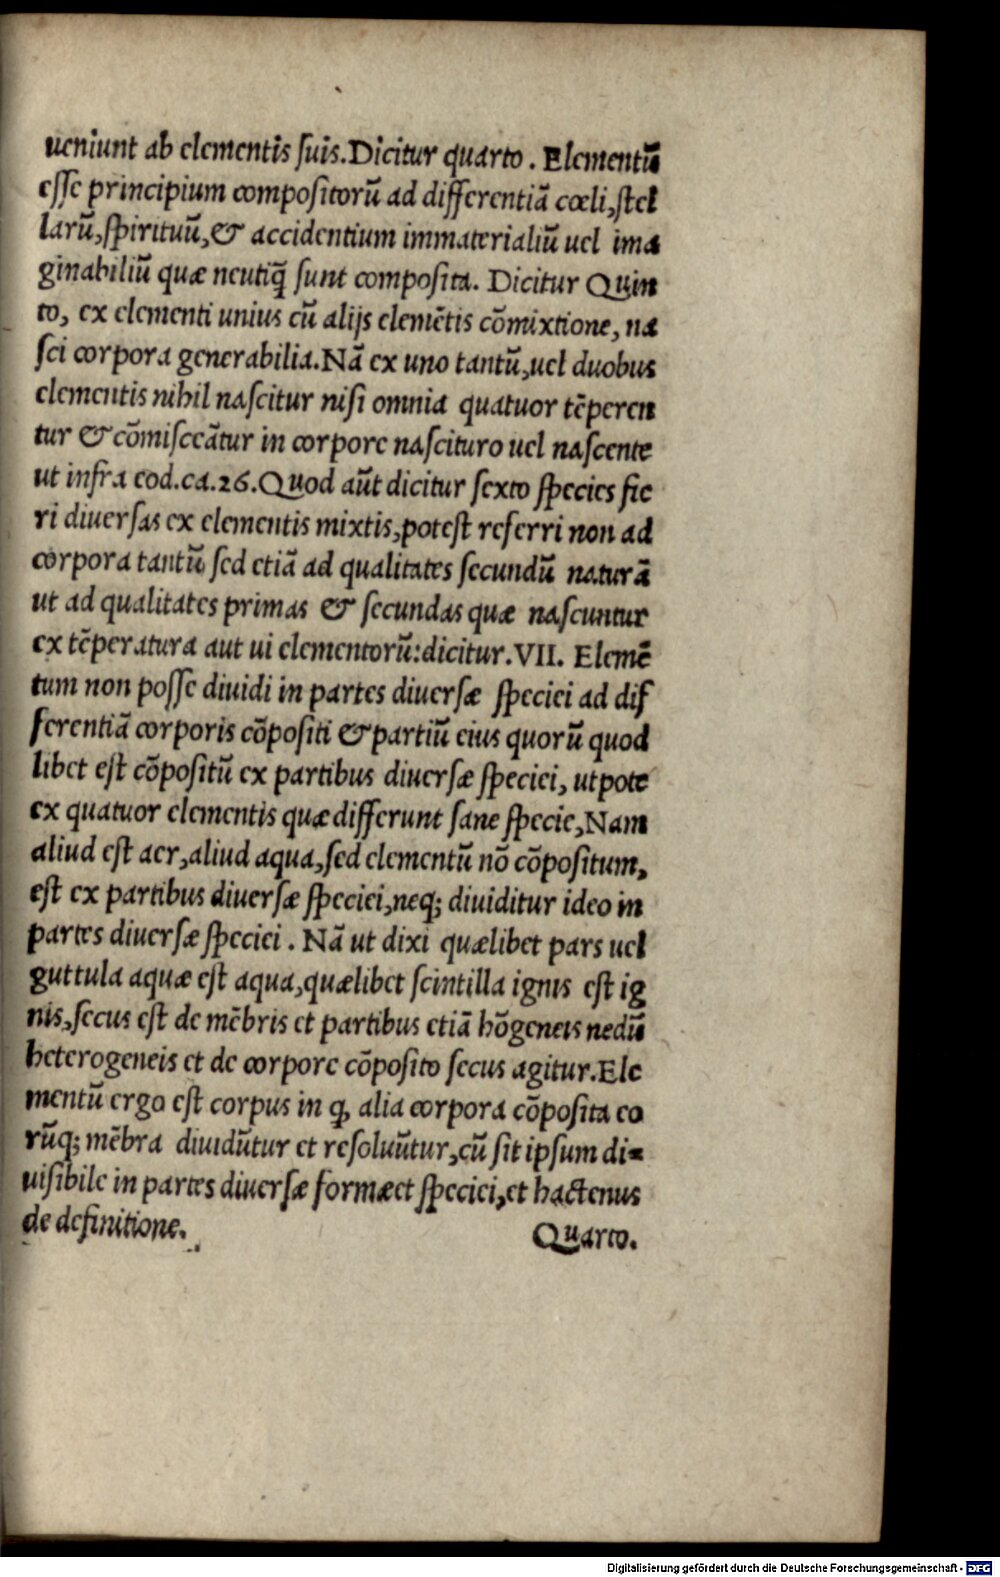 ueniunt ab elementis ſuis.Dicitur quarto . Elementū
eſſe principium compoſitorū ad differentiā cœli,ſtel
larū,ſpirituū,& accidentium immaterialiū uel ima
ginabiliū quæ neutiq̄ ſunt compoſita. Dicitur Quin
to, ex elementi unius cū alijs elemētis cōmixtione, na
ſci corpora generabilia.Nā ex uno tantū,uel duobus
elementis nihil naſcitur niſi omnia quatuor tēperen
tur & cōmiſceātur in corpore naſcituro uel naſcente
ut infra eod.ca.26.Quod aūt dicitur ſexto ſpecies fie
ri diuerſas ex elementis mixtis,poteſt referri non ad
corpora tantū ſed etiā ad qualitates ſecundū naturā
ut ad qualitates primas & ſecundas quæ naſcuntur
ex tēperatura aut ui elementorū:dicitur.VII. Elemē
tum non poſſe diuidi in partes diuerſæ ſpeciei ad dif
ferentiā corporis cōpoſiti & partiū eius quorū quod
libet eſt cōpoſitū ex partibus diuerſæ ſpeciei, utpote
ex quatuor elementis quæ differunt ſane ſpecie,Nam
aliud eſt aer,aliud aqua,ſed elementū nō cōpoſitum,
eſt ex partibus diuerſæ ſpeciei,neq; diuiditur ideo in
partes diuerſæ ſpeciei . Nā ut dixi quælibet pars uel
guttula aquæ eſt aqua,quælibet ſcintilla ignis eſt ig
nis,ſecus eſt de mēbris et partibus etiā hōgeneis nedū
heterogeneis et de corpore cōpoſito ſecus agitur.Ele
mentū ergo eſt corpus in q̨ alia corpora cōpoſita eo
rūq; mēbra diuidūtur et reſoluūtur,cū ſit ipſum di=
uiſibile in partes diuerſæ formæ et ſpeciei,et hactenus
de definitione.
Quarto.
Digitalisierung gefördert durch die Deutsche Forschungsgemeinschaft - DFG